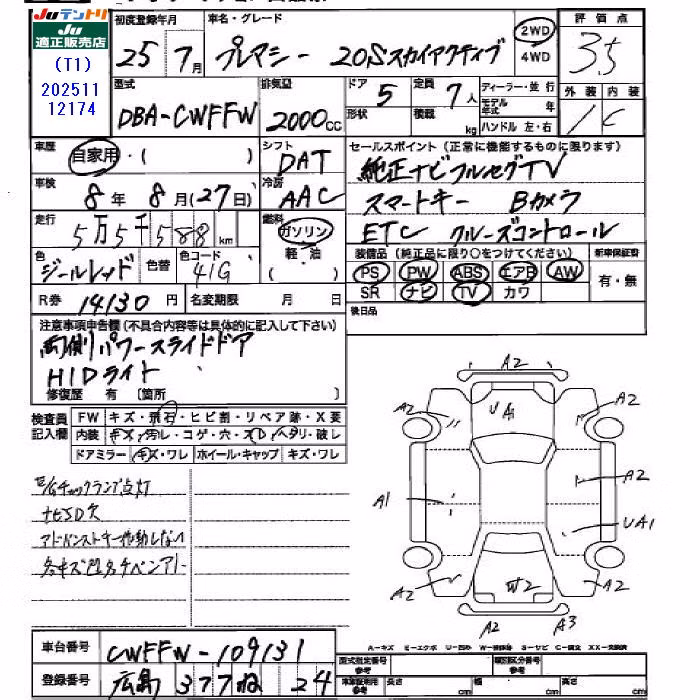 JUテントリ
JU
適正販売店
(T1)
202511
12174
初度登録年月
25年7月
車名・グレード
プレマシー 20Sスカイアクティブ
2WD
4WD
評価点
3.5
外装 内装
1 C
型式
DBA-CWFFW
排気量
2000cc
ドア 5
形状
定員 7人
積載 kg
ディーラー・並行
モデル年式 年
ハンドル 左・右
車歴
自家用・( )
シフト
DAT
車検
8年8月(27日)
冷房
AAC
走行
5万5千588km
燃料
ガソリン
軽・油
( )
色
ジールレッド
色替
色コード
41G
R券 14130円
名変期限 月 日
セールスポイント(正常に機能するものに限ります)
純正ナビフルセグTV
スマートキー Bカメラ
ETC クルーズコントロール
装備品(純正品に限り○をつけてください)
PS PW ABS エアB AW
SR ナビ TV カワ
新車保証書
有・無
後日品
注意事項申告欄(不具合内容等は具体的に記入して下さい)
両側パワースライドドア
HIDライト
修復歴 有〔箇所 〕
検査員
記入欄
FW キズ・飛石・ヒビ割・リペア跡・X要
内装 キズ・汚レ・コゲ・穴・スレ・ヘタリ・破レ
ドアミラー キズ・ワレ ホイール・キャップ キズ・ワレ
チェックランプ点灯
ナビSD欠
アドバンストキー作動しない
A2
A2
UA1
A2
A1
A2
UA1
A2
W2
A2
A2
A3
A-キズ E-エクボ U-凹ミ W-補修跡 S-サビ C-腐食 XX-交換済
車台番号
CWFFW-109131
登録番号
広島 377ね 24
型式指定番号 参考
類別区分番号 参考
車庫証明用 参考 長さ cm 幅 cm 高さ cm